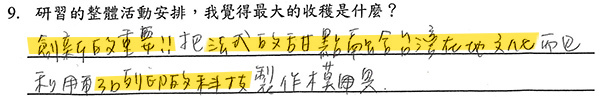 9. 研習的整體活動安排，我覺得最大的收穫是什麼？
創新的重要!! 把法式的甜點結合台灣在地文化而且
利用3D列印的科技製作模具.